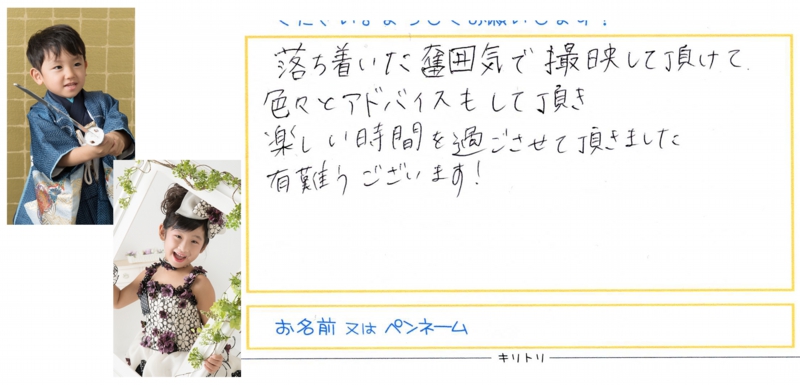 落ち着いた奮囲気で撮映して頂けて、
色々とアドバイスもして頂き
楽しい時間を過ごさせて頂きました
有難うございます!
お名前 又は ペンネーム
キリトリ